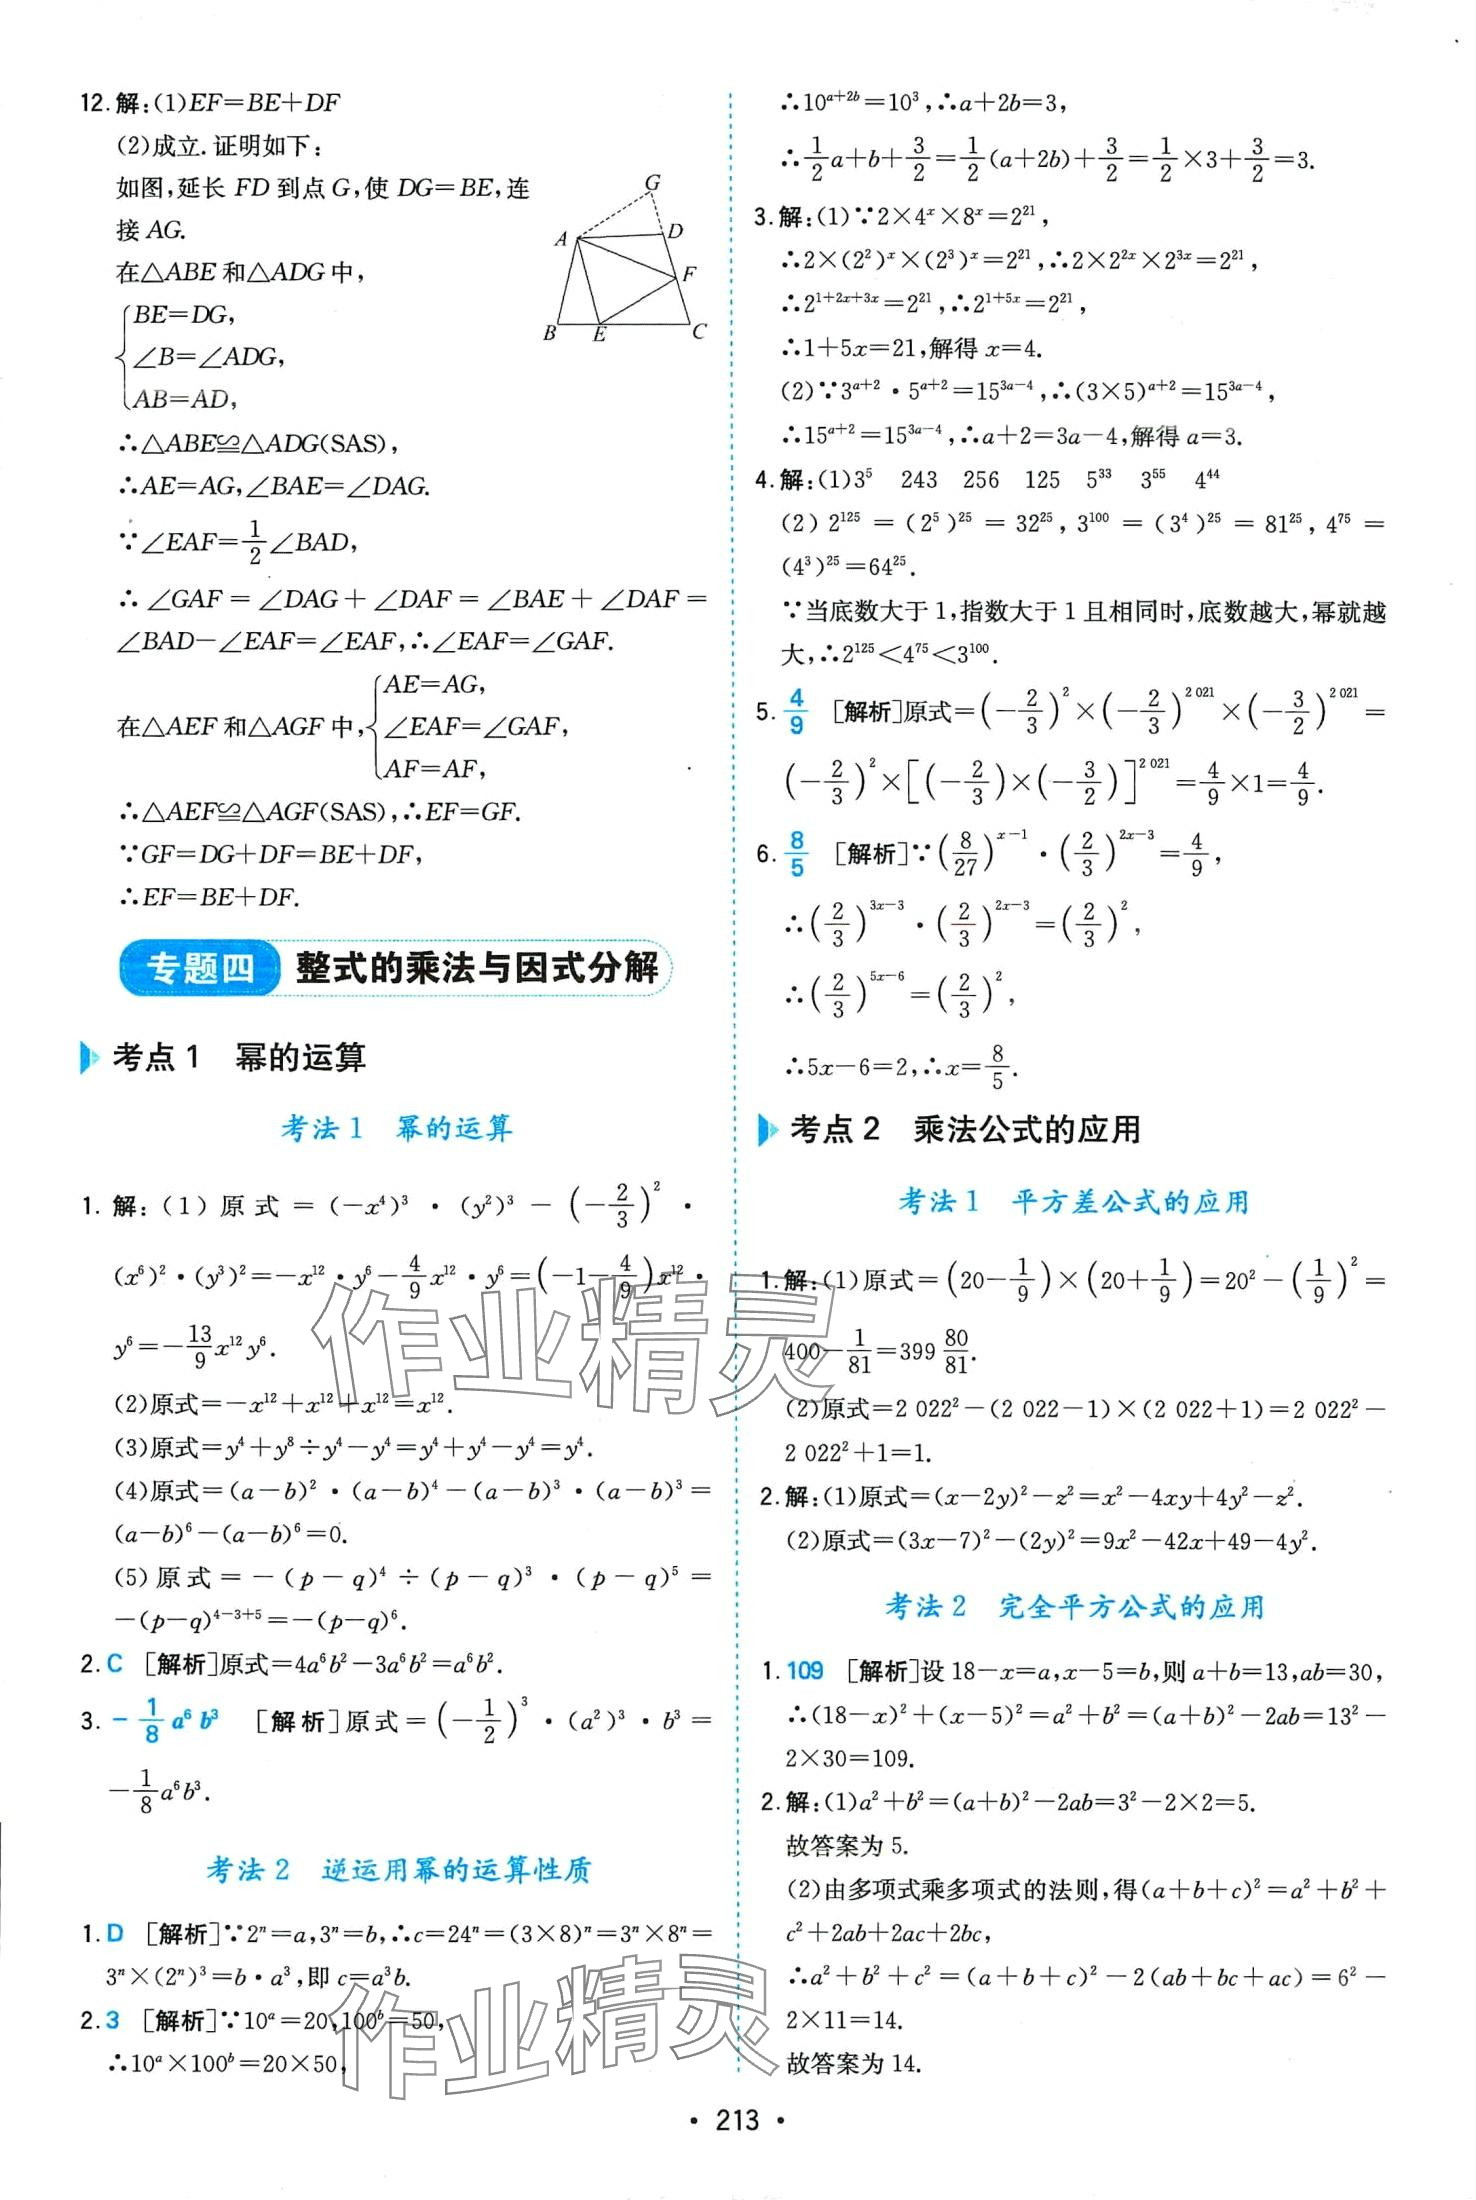 12.解:(1)EF=BE+DF
(2)成立.证明如下:
如图,延长 FD 到点 G,使 DG=BE,连
接 AG.
在△ABE 和△ADG 中,
{BE=DG,
∠B=∠ADG,
AB=AD,
∴△ABE≌△ADG(SAS),
∴AE=AG,∠BAE=∠DAG.
∵∠EAF=1/2∠BAD,
∴∠GAF=∠DAG+∠DAF=∠BAE+∠DAF=
∠BAD-∠EAF=∠EAF,∴∠EAF=∠GAF.
在△AEF 和△AGF 中,{AE=AG,
∠EAF=∠GAF,
AF=AF,
∴△AEF≌△AGF(SAS),∴EF=GF.
∵GF=DG+DF=BE+DF,
∴EF=BE+DF.
G
A
D
F
B
E
C
专题四 整式的乘法与因式分解
考点1 幂的运算
考法1 幂的运算
1.解:(1)原式=(-x⁴)³·(y²)³-(-2/3)²·
(x⁶)²·(y³)²=-x¹²·y⁶-4/9x¹²·y⁶=(-1-4/9)x¹²·
y⁶=-13/9x¹²y⁶.
(2)原式=-x¹²+x¹²+x¹²=x¹².
(3)原式=y⁴+y⁸÷y⁴-y⁴=y⁴+y⁴-y⁴=y⁴.
(4)原式=(a-b)²·(a-b)⁴-(a-b)³·(a-b)³=
(a-b)⁶-(a-b)⁶=0.
(5)原式=-(p-q)⁴÷(p-q)³·(p-q)⁵=
-(p-q)⁴⁻³⁺⁵=-(p-q)⁶.
2.C [解析]原式=4a⁶b²-3a⁶b²=a⁶b².
3.-1/8a⁶b³ [解析]原式=(-1/2)³·(a²)³·b³=
-1/8a⁶b³.
考法2 逆运用幂的运算性质
1.D [解析]∵2ⁿ=a,3ⁿ=b,∴c=24ⁿ=(3×8)ⁿ=3ⁿ×8ⁿ=
3ⁿ×(2ⁿ)³=b·a³,即 c=a³b.
2.3 [解析]∵10ᵃ=20,100ᵇ=50,
∴10ᵃ×100ᵇ=20×50,
∴10ᵃ⁺²ᵇ=10³,∴a+2b=3,
∴1/2a+b+3/2=1/2(a+2b)+3/2=1/2×3+3/2=3.
3.解:(1)∵2×4ˣ×8ˣ=2²¹,
∴2×(2²)ˣ×(2³)ˣ=2²¹,∴2×2²ˣ×2³ˣ=2²¹,
∴2¹⁺²ˣ⁺³ˣ=2²¹,∴2¹⁺⁵ˣ=2²¹,
∴1+5x=21,解得 x=4.
(2)∵3ᵃ⁺²·5ᵃ⁺²=15³ᵃ⁻⁴,∴(3×5)ᵃ⁺²=15³ᵃ⁻⁴,
∴15ᵃ⁺²=15³ᵃ⁻⁴,∴a+2=3a-4,解得 a=3.
4.解:(1)3⁵ 243 256 125 5³³ 3⁵⁵ 4⁴⁴
(2)2¹²⁵=(2⁵)²⁵=32²⁵,3¹⁰⁰=(3⁴)²⁵=81²⁵,4⁷⁵=
(4³)²⁵=64²⁵.
∵当底数大于1,指数大于1且相同时,底数越大,幂就越
大,∴2¹²⁵<4⁷⁵<3¹⁰⁰.
5.4/9 [解析]原式=(-2/3)²×(-2/3)²⁰²¹×(-3/2)²⁰²¹=
(-2/3)²×[(-2/3)×(-3/2)]²⁰²¹=4/9×1=4/9.
6.8/5 [解析]∵(8/27)ˣ⁻¹·(2/3)²ˣ⁻³=4/9,
∴(2/3)³ˣ⁻³·(2/3)²ˣ⁻³=(2/3)²,
∴(2/3)⁵ˣ⁻⁶=(2/3)²,
∴5x-6=2,∴x=8/5.
考点2 乘法公式的应用
考法1 平方差公式的应用
1.解:(1)原式=(20-1/9)×(20+1/9)=20²-(1/9)²=
400-1/81=399 80/81.
(2)原式=2 022²-(2 022-1)×(2 022+1)=2 022²-
2 022²+1=1.
2.解:(1)原式=(x-2y)²-z²=x²-4xy+4y²-z².
(2)原式=(3x-7)²-(2y)²=9x²-42x+49-4y².
考法2 完全平方公式的应用
1.109 [解析]设 18-x=a,x-5=b,则 a+b=13,ab=30,
∴(18-x)²+(x-5)²=a²+b²=(a+b)²-2ab=13²-
2×30=109.
2.解:(1)a²+b²=(a+b)²-2ab=3²-2×2=5.
故答案为 5.
(2)由多项式乘多项式的法则,得(a+b+c)²=a²+b²+
c²+2ab+2ac+2bc,
∴a²+b²+c²=(a+b+c)²-2(ab+bc+ac)=6²-
2×11=14.
故答案为 14.
作业精灵
作业精灵
· 213 ·